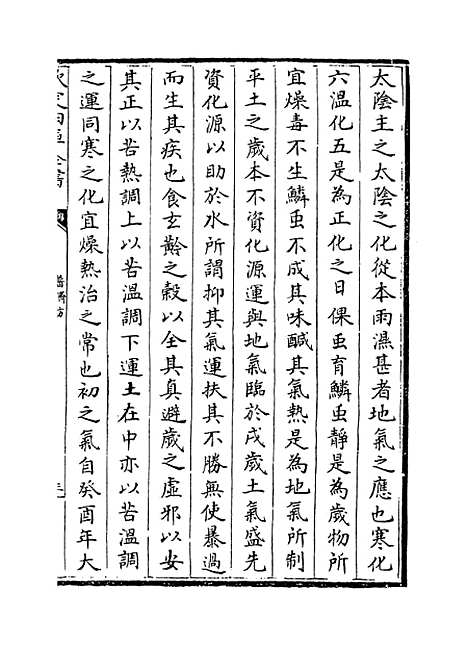 太陰主之太陰之化從本雨濕甚者地氣之應也寒化
六溫化五是為正化之日倮䖝育鱗䖝靜是為歲物所
宜燥毒不生鱗䖝不成其味醎其氣熱是為地氣所制
平土之歲本不資化源運與地氣臨於戌歲土氣盛先
資化源以助於水所謂抑其氣運扶其不勝無使暴過
而生其疾也食玄黅之穀以全其真避歲之虛邪以安
其正以苦熱調上以苦溫調下運土在中亦以苦溫調
之運同寒之化宜燥熱治之常也初之氣自癸酉年大
欽定四庫全書
普濟方